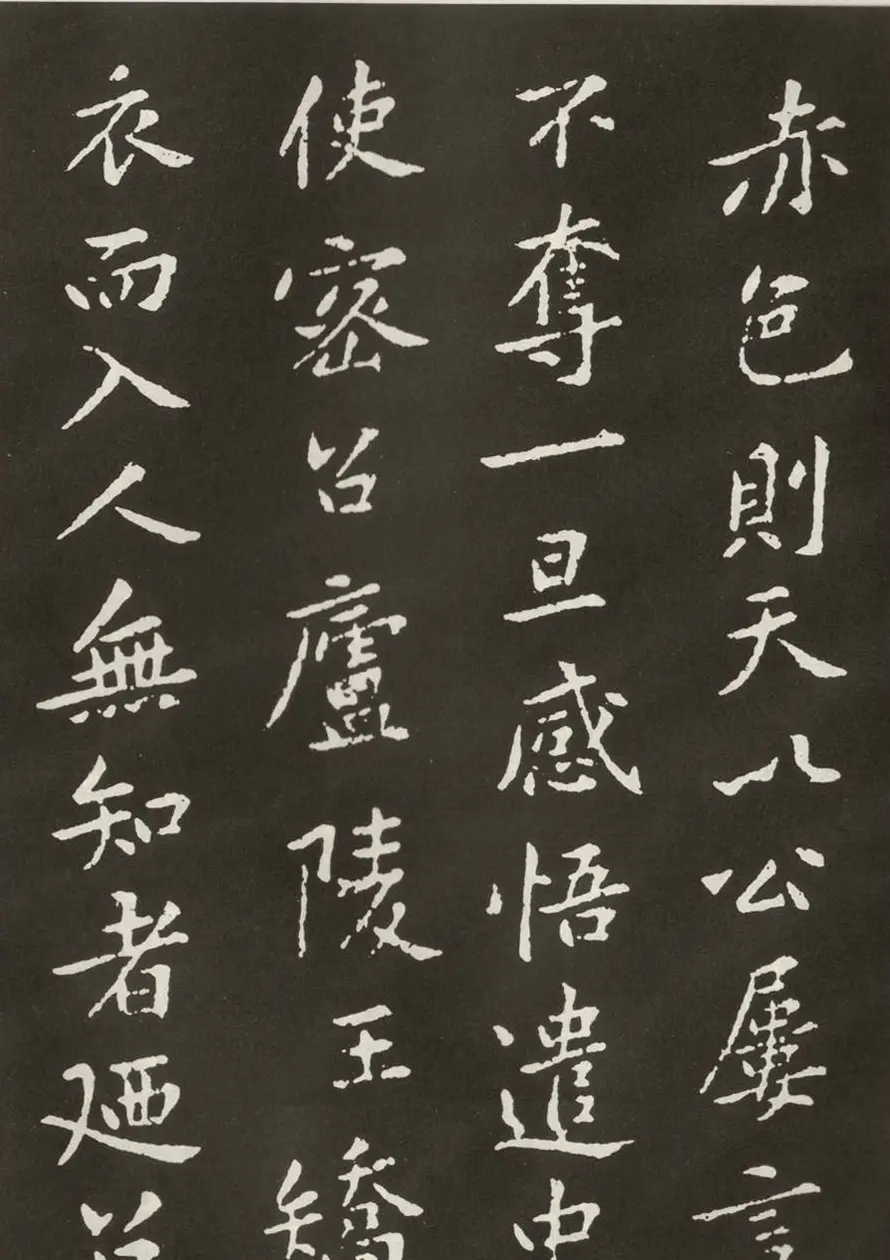 赤色則天以公屢言
不奪一旦感悟遣中
使密召廬陵王矯
衣而入人無知者廼召